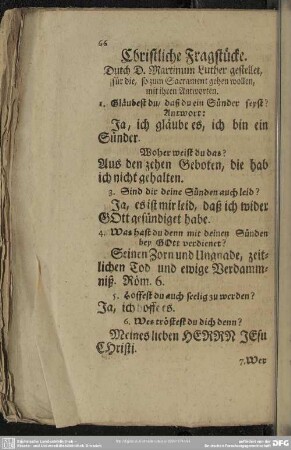 66
Christliche Fragstücke.
Durch D. Martinum Luther gestellet,
für die, so zum Sacrament gehen wollen,
mit ihren Antworten.
1. Gläubest du, daß du ein Sünder seyst?
Antwort:
Ja, ich gläube es, ich bin ein
Sünder.
Woher weist du das?
Aus den zehen Geboten, die hab
ich nicht gehalten.
3. Sind dir deine Sünden auch leid?
Ja, es ist mir leid, daß ich wider
GOtt gesündiget habe.
4. Was hast du denn mit deinen Sünden
bey GOtt verdienet?
Seinen Zorn und Ungnade, zeit-
lichen Tod und ewige Verdamm-
niß. Röm. 6.
5. Hoffest du auch seelig zu werden?
Ja, ich hoffe es.
6. Wes tröstest du dich denn?
Meines lieben HERRN JEsu
CHristi.
7. Wer